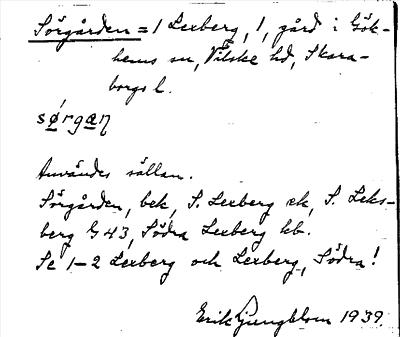 Sörgården = 1 Lexberg, 1, gård i Gök-
hems sn, Vilske hd, Skara-
borgs l.
sø´rgæɳ
Användes sällan.
Sörgården, bek, S. Lexberg ek, S. Leks-
berg G 43, Södra Lexberg hb.
Se 1-2 Lexberg och Lexberg, Södra!
Erik Ljungblom 1939.